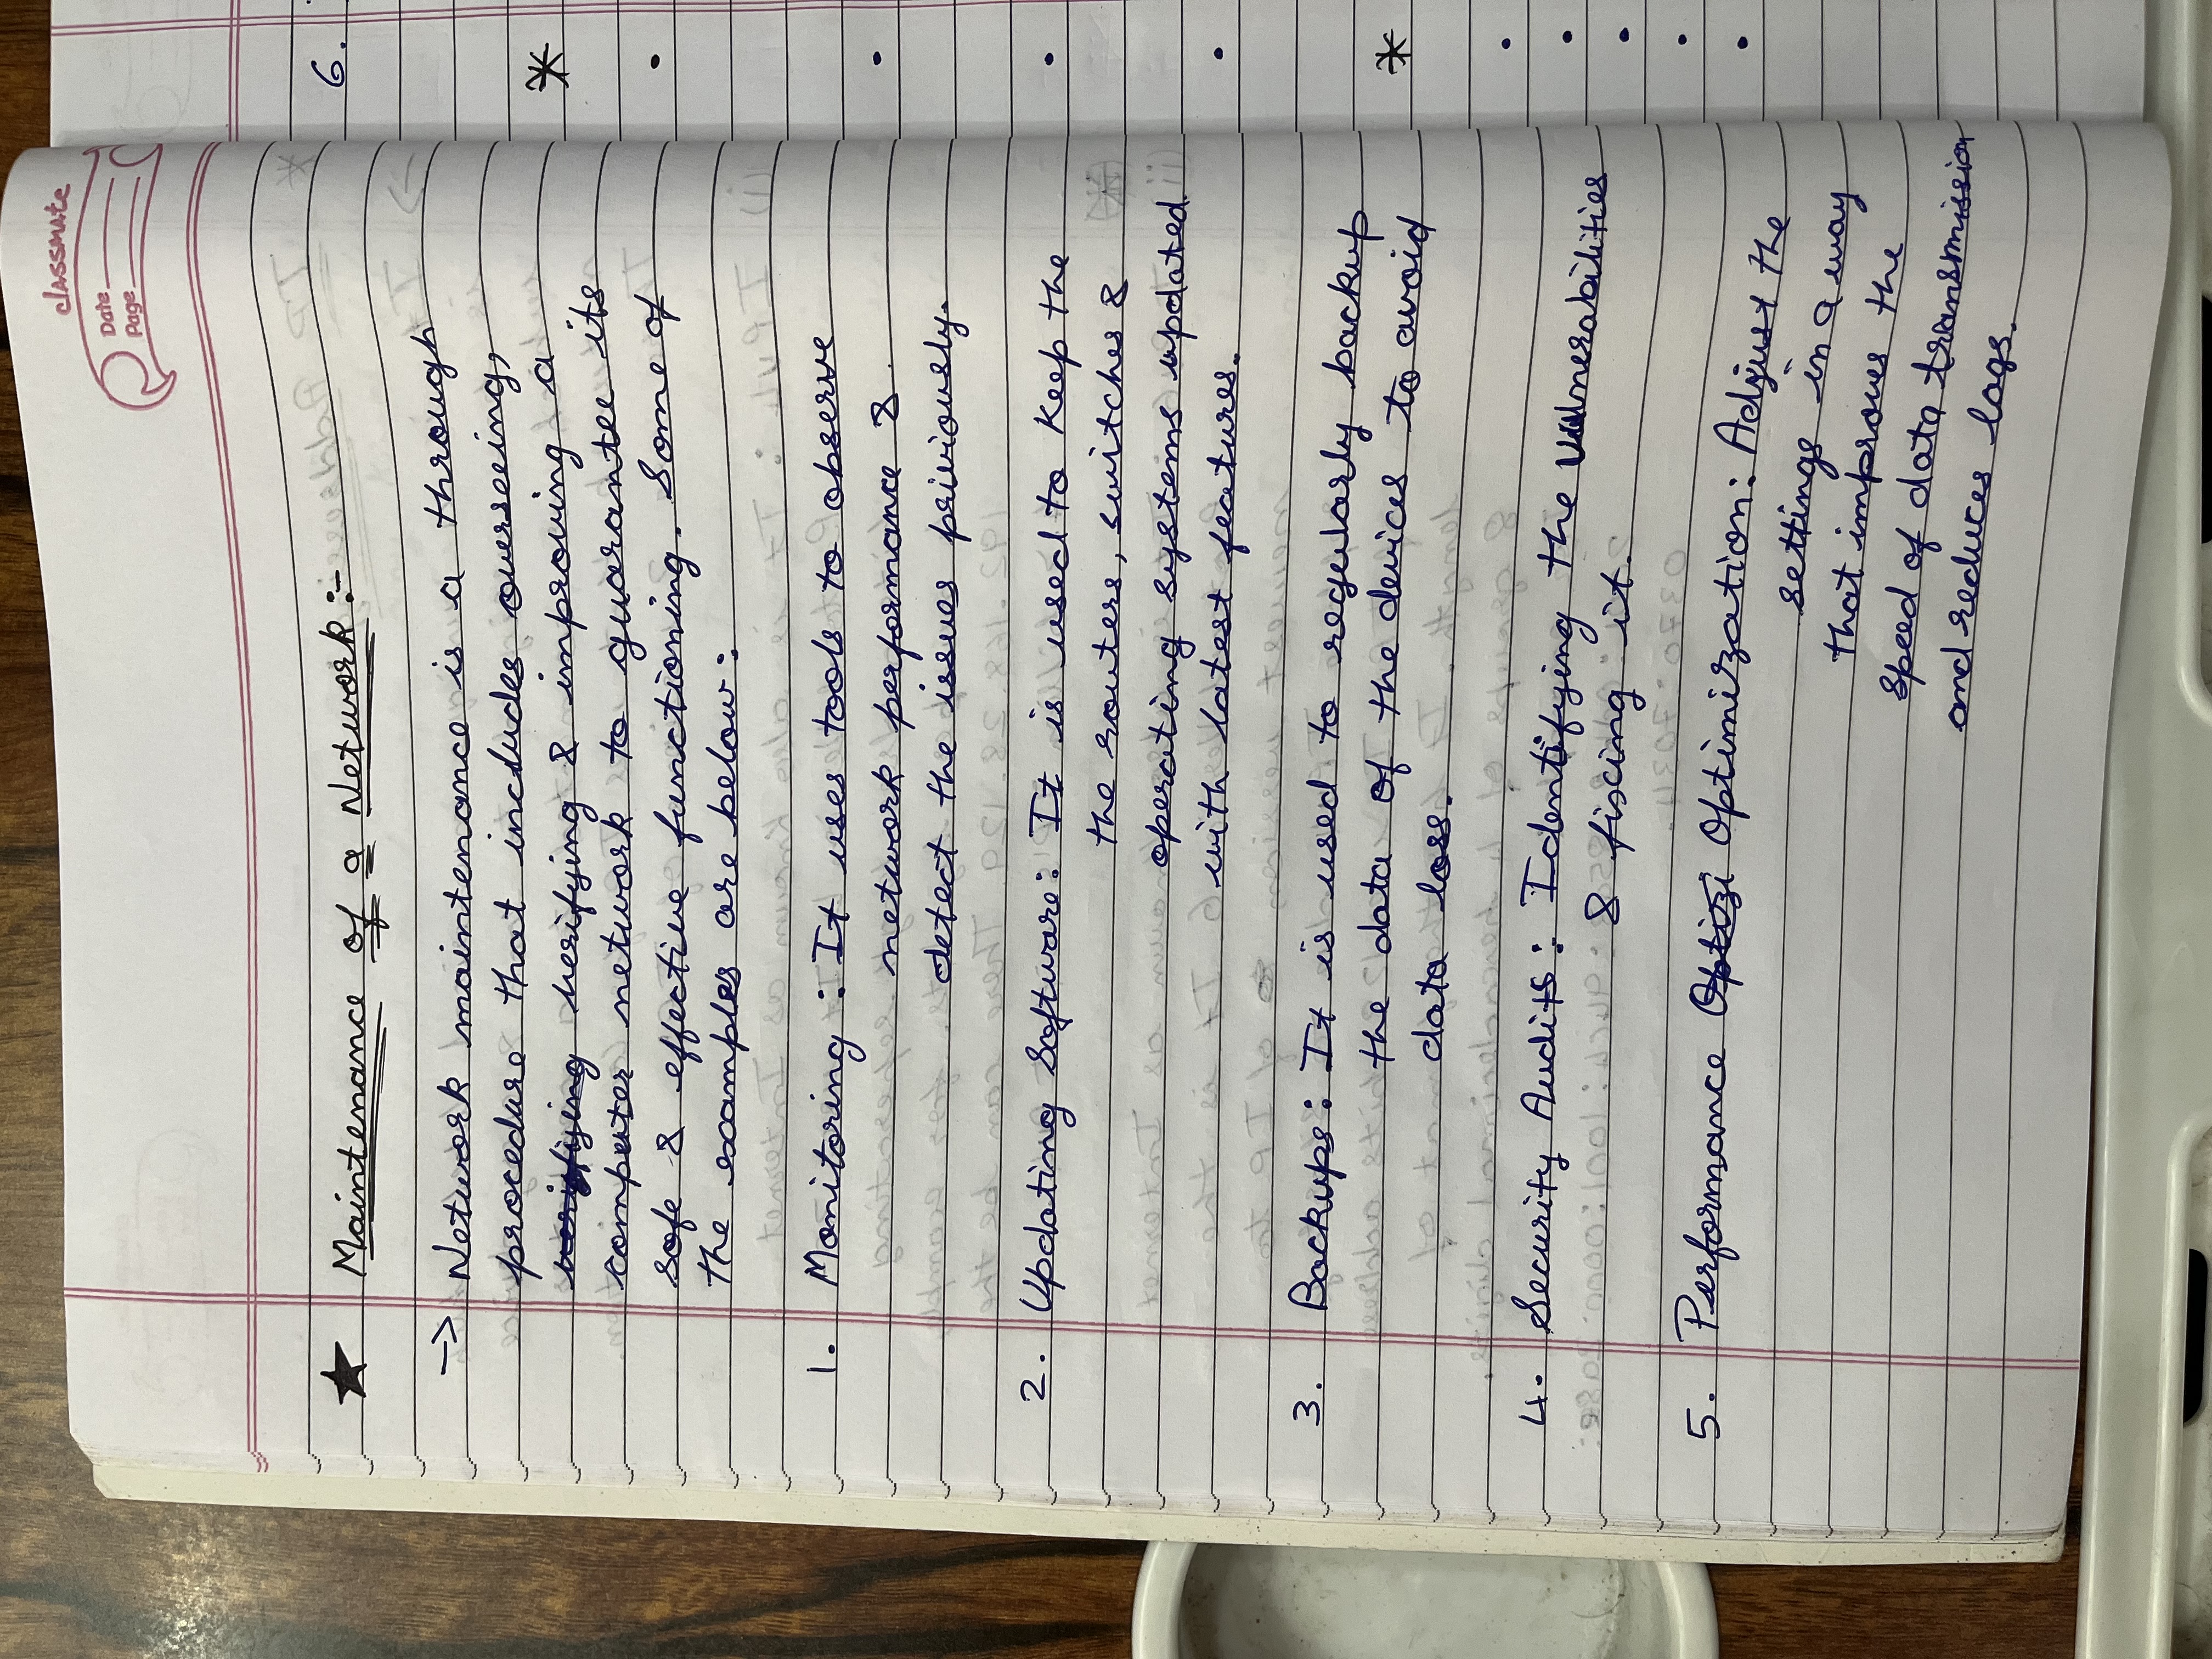 classmate
Date
Page
★ Maintenance of a Network :-
→ Network maintenance is a through
procedure that includes overseeing,
verifying verifying & improving a
computer network to guarantee its
safe & effective functioning. Some of
the examples are below:
1. Monitoring : It uses tools to observe
network performance &
detect the issues priviously.
2. Updating Software: It is used to keep the
the routers, switches &
operating systems updated
with latest features.
3. Backups: It is used to regularly backup
the data of the devices to avoid
data loss.
4. Security Audits: Identifying the vulnerabilities
& fixing it.
5. Performance Optizi Optimization: Adjust the
settings in a way
that improves the
speed of data transmission
and reduces lags.
6.
*
*